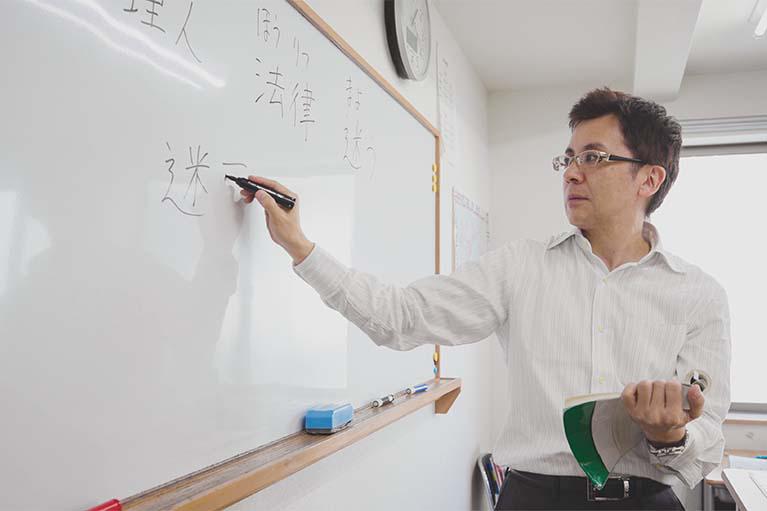 理人
ほうりつ
法律
まよ
迷う
迷